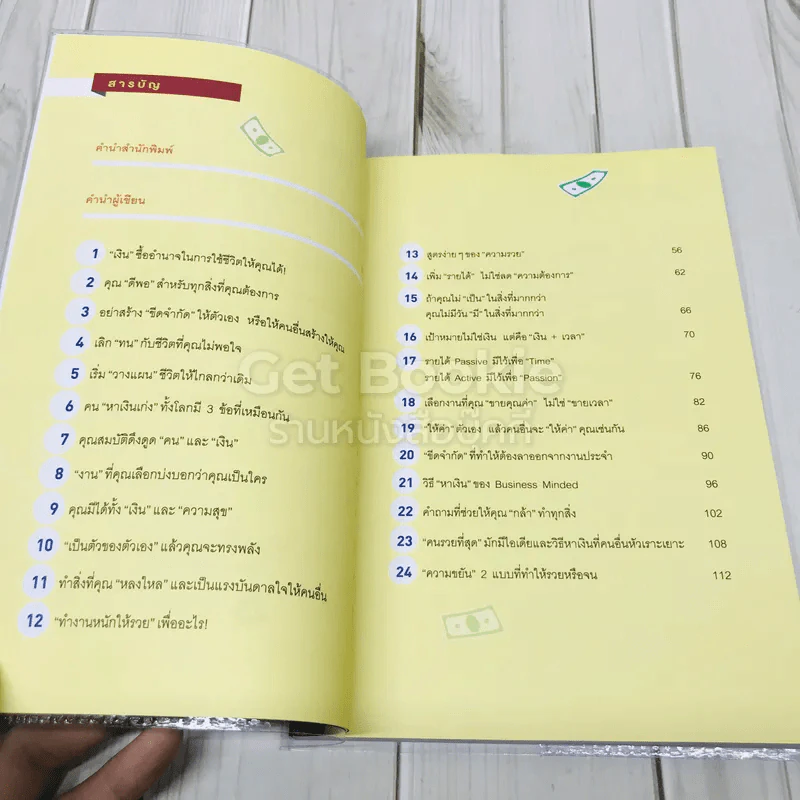 สารบัญ
คำนำสำนักพิมพ์
คำนำผู้เขียน
1 “เงิน” ซื้ออำนาจในการใช้ชีวิตให้คุณได้!
2 คุณ “ดีพอ” สำหรับทุกสิ่งที่คุณต้องการ
3 อย่าสร้าง “ขีดจำกัด” ให้ตัวเอง หรือให้คนอื่นสร้างให้คุณ
4 เลิก “ทน” กับชีวิตที่คุณไม่พอใจ
5 เริ่ม “วางแผน” ชีวิตให้ไกลกว่าเดิม
6 คน “หาเงินเก่ง” ทั้งโลกมี 3 ข้อที่เหมือนกัน
7 คุณสมบัติดึงดูด “คน” และ “เงิน”
8 “งาน” ที่คุณเลือกบ่งบอกว่าคุณเป็นใคร
9 คุณมีได้ทั้ง “เงิน” และ “ความสุข”
10 “เป็นตัวของตัวเอง” แล้วคุณจะทรงพลัง
11 ทำสิ่งที่คุณ “หลงใหล” และเป็นแรงบันดาลใจให้คนอื่น
12 “ทำงานหนักให้รวย” เพื่ออะไร!
13 สูตรง่าย ๆ ของ “ความรวย” 56
14 เพิ่ม “รายได้” ไม่ใช่ลด “ความต้องการ” 62
15 ถ้าคุณไม่ “เป็น” ในสิ่งที่มากกว่า
คุณไม่มีวัน “มี” ในสิ่งที่มากกว่า 66
16 เป้าหมายไม่ใช่เงิน แต่คือ “เงิน + เวลา” 70
17 รายได้ Passive มีไว้เพื่อ “Time”
รายได้ Active มีไว้เพื่อ “Passion” 76
18 เลือกงานที่คุณ “ขายคุณค่า” ไม่ใช่ “ขายเวลา” 82
19 “ให้ค่า” ตัวเอง แล้วคนอื่นจะ “ให้ค่า” คุณเช่นกัน 86
20 “ขีดจำกัด” ที่ทำให้ต้องลาออกจากงานประจำ 90
21 วิธี “หาเงิน” ของ Business Minded 96
22 คำถามที่ช่วยให้คุณ “กล้า” ทำทุกสิ่ง 102
23 “คนรวยที่สุด” มักมีไอเดียและวิธีหาเงินที่คนอื่นหัวเราะเยาะ 108
24 “ความขยัน” 2 แบบที่ทำให้รวยหรือจน 112
Get Bookie
ร้านหนังสือบุ๊คกี้